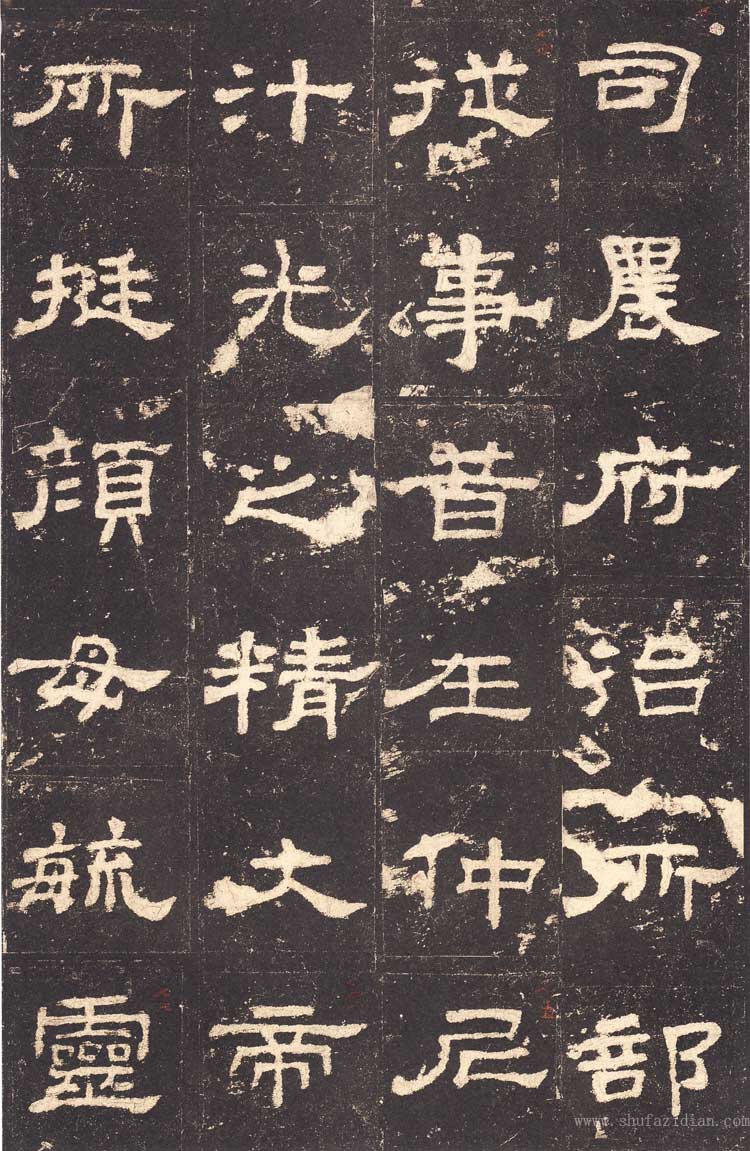 司農府治所部
從事昔在仲尼
汁光之精大帝
所挺顏母毓靈
www.shufazidian.com